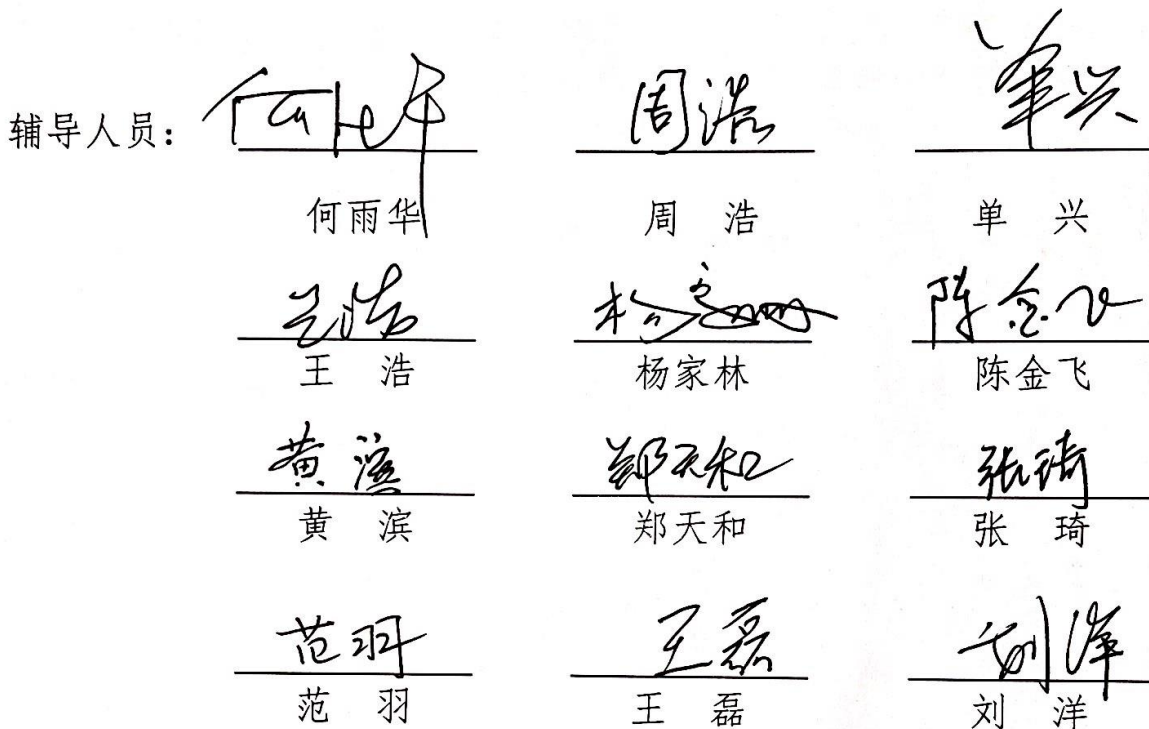 辅导人员：
何雨华 周浩 单兴
何雨华 周 浩 单 兴
王浩 杨家林 陈金飞
王 浩 杨家林 陈金飞
黄滨 郑天和 张琦
黄 滨 郑天和 张 琦
范羽 王磊 刘洋
范 羽 王 磊 刘 洋